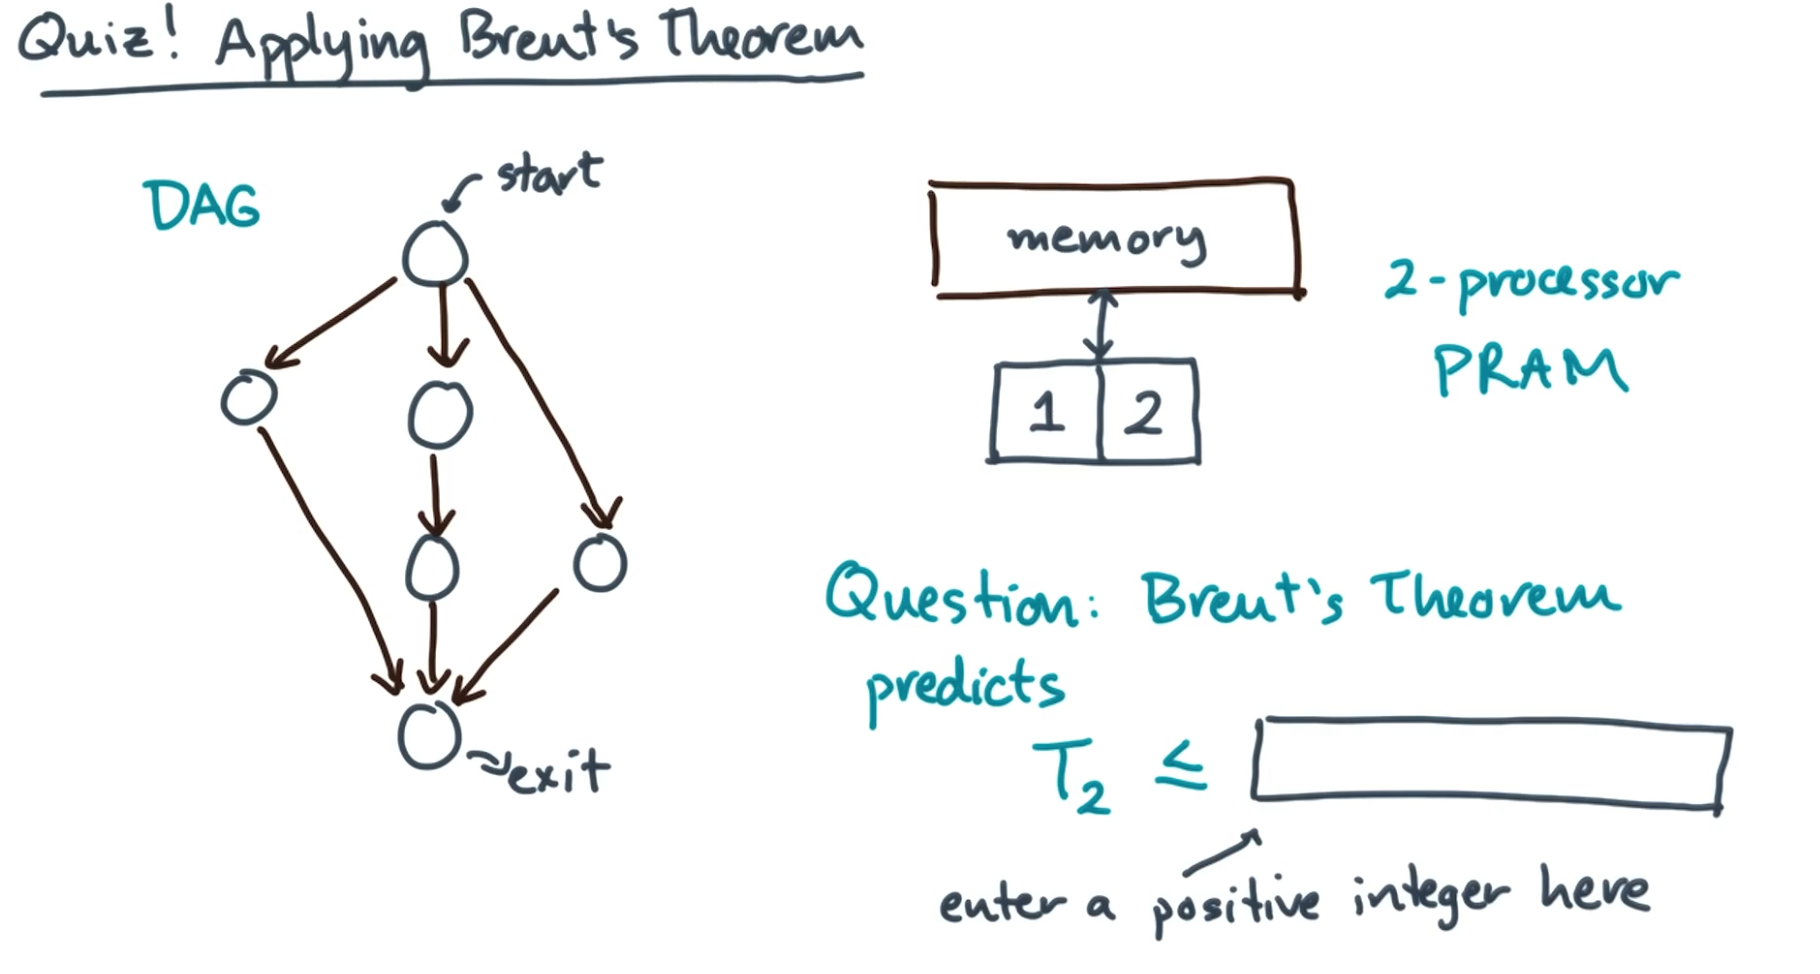 Quiz! Applying Brent's Theorem
DAG
start
exit
memory
1 2
2-processor
PRAM
Question: Brent's Theorem
predicts
T₂ ≤
enter a positive integer here